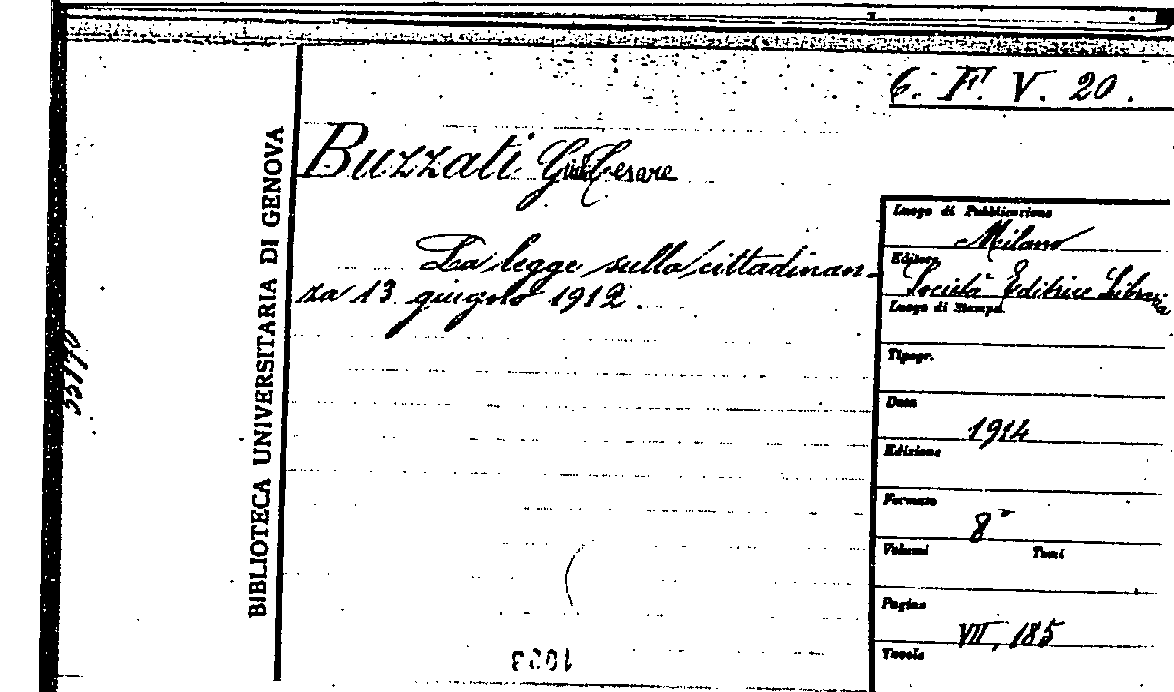 6. F. V. 20.
BIBLIOTECA UNIVERSITARIA DI GENOVA
Buzzati Giulio Cesare
La legge sulla cittadinan-
za 13 giugno 1912.
Luogo di Pubblicazione
Milano
Editore
Società Editrice Libraria
Luogo di Stampa
Tipogr.
Data
1914
Edizione
Formato
8°
Volumi Tomi
Pagine
VII, 185
Tavole